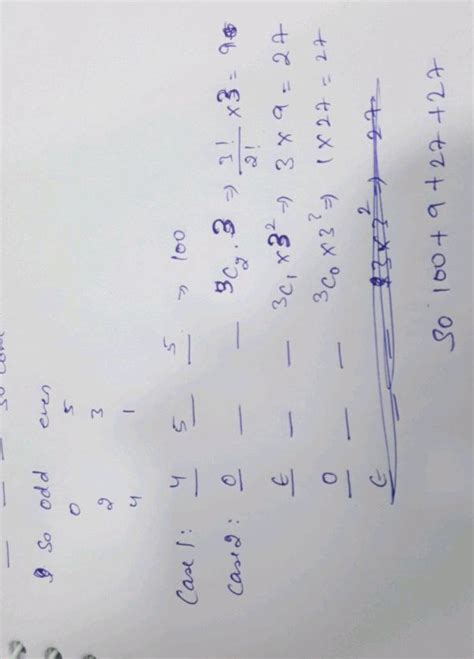 So odd even
0 5
2 3
4 1
Case 1: 4 5 5 ⇒ 100
Case 2: 0 _ _ ³C₂ . 3 ⇒ 3!/2! × 3 = 9
E _ _ ³C₁ × 3² ⇒ 3 × 9 = 27
0 _ _ ³C₀ × 3³ ⇒ 1 × 27 = 27
So 100 + 9 + 27 + 27